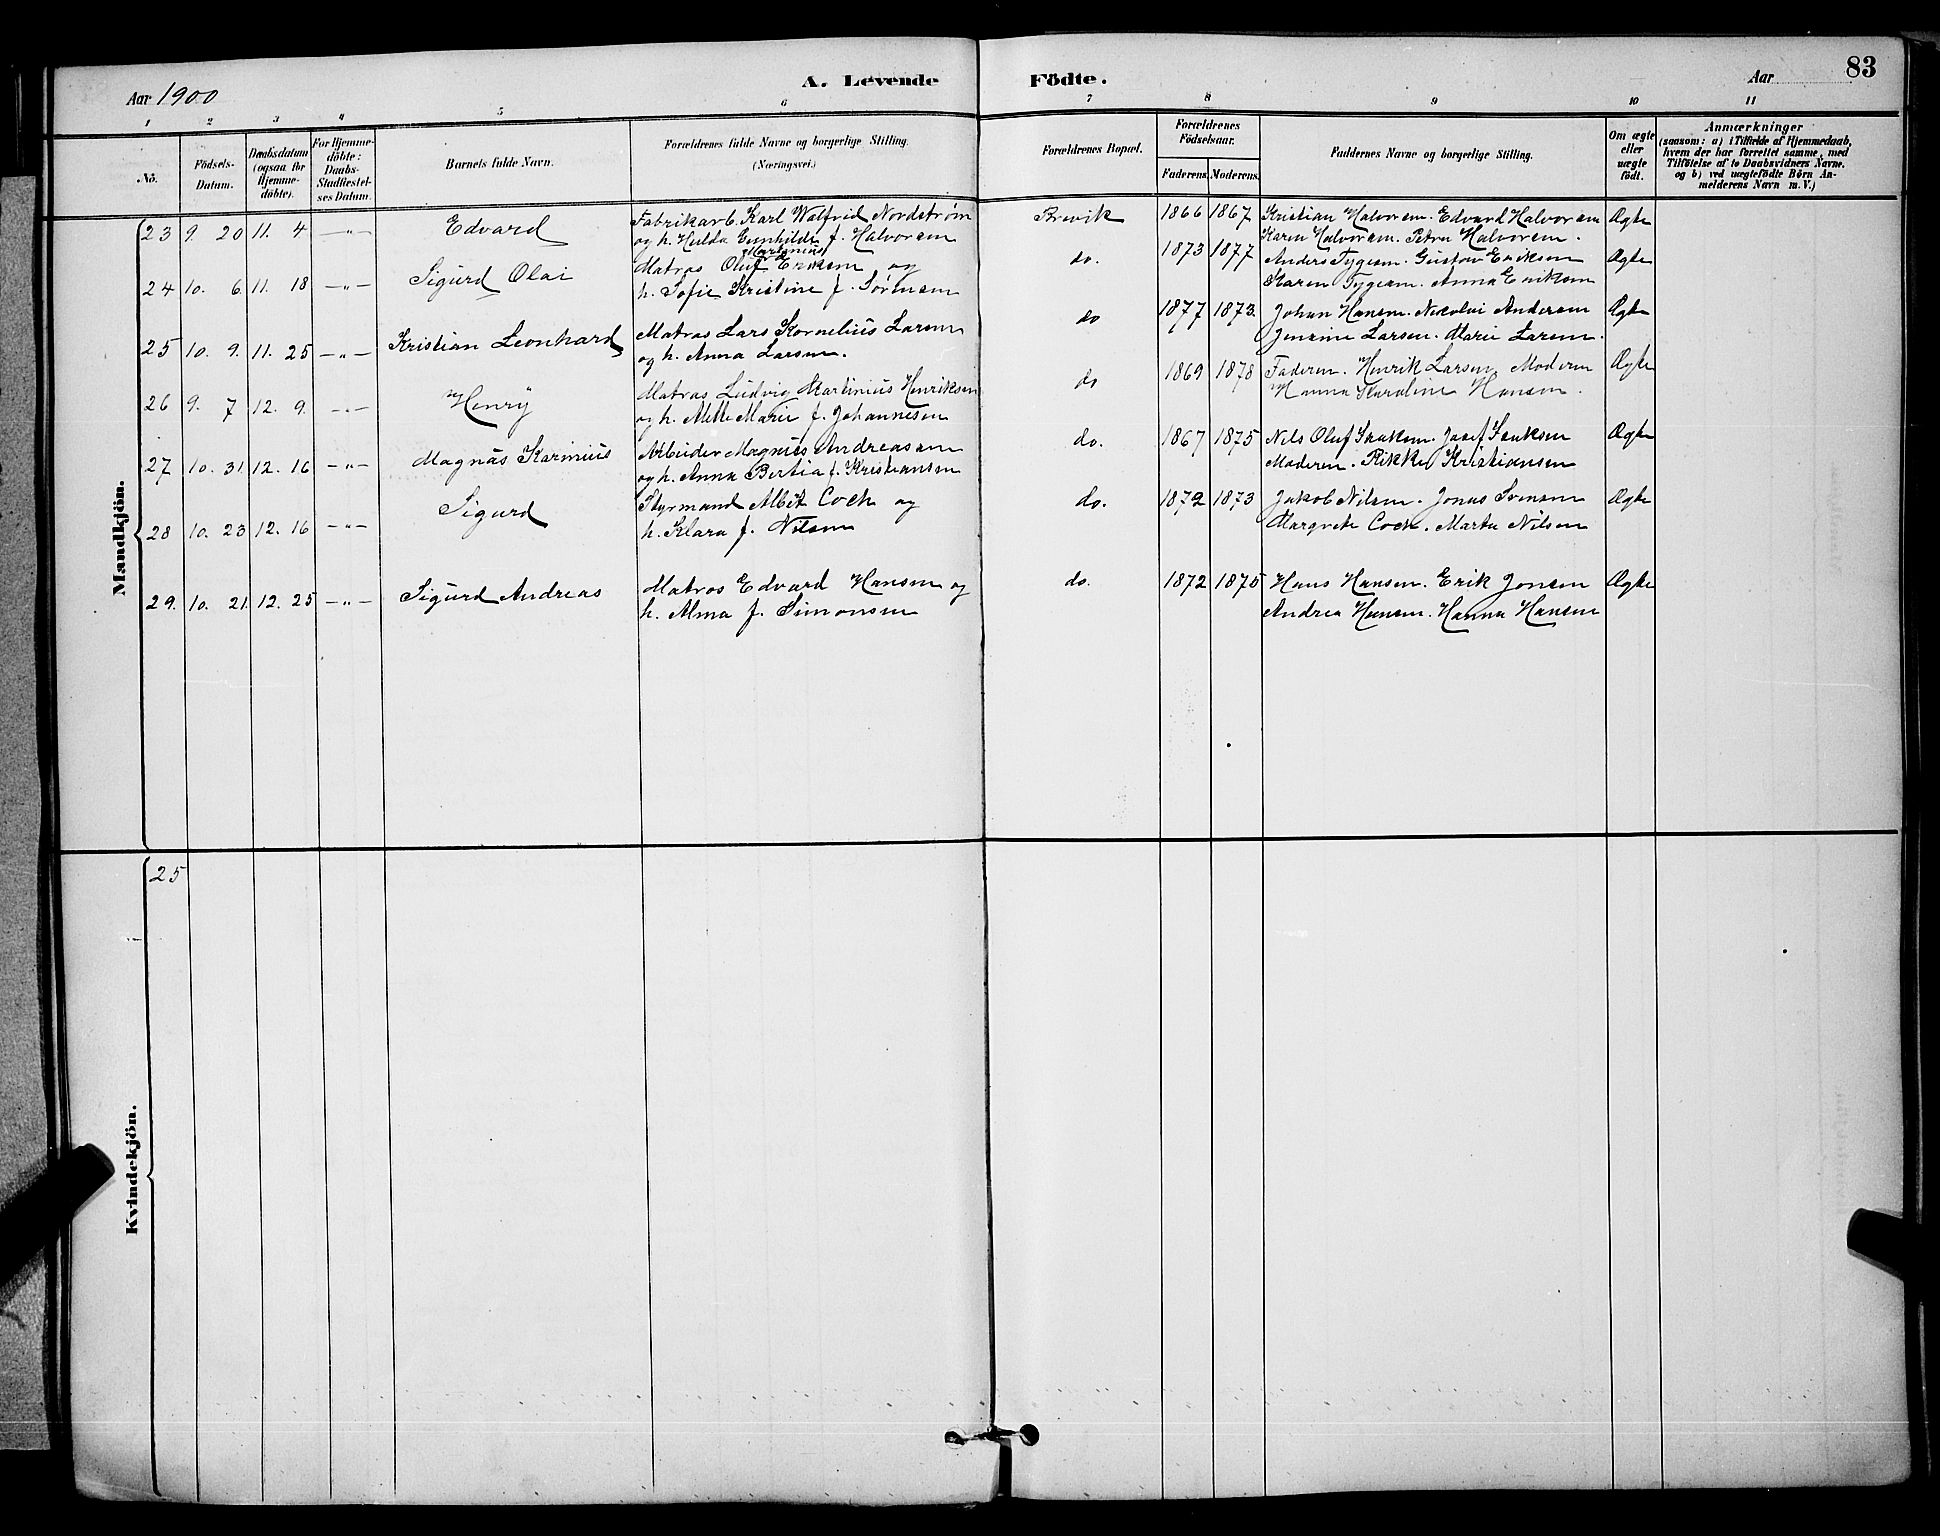 Aar 1900
A. Levende Födte.
Aar
83
1 2 3 4 5 6 7 8 9 10 11
No.
Födsels-
Datum.
Daabsdatum
(ogsaa for
Hjemme-
döbte).
For Hjemme-
döbte:
Daabs-
Stadfæstel-
ses Datum.
Barnets fulde Navn.
Forældrenes fulde Navne og borgerlige Stilling.
(Næringsvei.)
Forældrenes Bopæl.
Forældrenes
Födselsaar.
Faderens. Moderens.
Faddernes Navne og borgerlige Stilling.
Om ægte
eller
uægte
født.
Anmærkninger
(saasom: a) i Tilfælde af Hjemmedaab,
hvem der har forrettet samme, med
Tilföielse af to Daabsvidners Navne.
og b) ved uægtefödte Börn An-
melderens Navn m. V.)
Mandkjön.
23 9. 20 11. 4 —„— Edvard
Fabrikarb. Karl Walfrid Nordstrøm
og h. Hulda Gunhilde f. Halvorsen
Brevik 1866 1867
Kristian Halvorsen. Edvard Halvorsen
Karen Halvorsen. Petra Halvorsen.
Ægte
24 10. 6. 11. 18 —„— Sigurd Olai
Martinius
Matros Oluf Eriksen og
h. Sofie Kristine f. Sørensen
do. 1873 1877
Anders Tygesen. Gustav Eriksen
Karen Tygesen. Anna Eriksen
Ægte
25 10. 9. 11. 25 —„— Kristian Leonhard
Matros Lars Kornelius Larsen
og h. Anna Larsen.
do 1877 1873.
Johan Hansen. Nicolai Andersen
Jensine Larsen. Marie Larsen.
Ægte
26 9. 7 12. 9. —„— Henry
Matros Ludvig Martinius Henriksen
og h. Mette Marie f. Johannesen
do 1869 1878
Faderen. Henrik Larsen, Moderen
Hanna Karoline Hansen.
Ægte
27 10. 31. 12. 16 —„— Magnus Karinius
Arbeider Magnus Andreassen
og h. Anna Bertia f. Kristiansen
do. 1867 1875
Nils Oluf Isaksen. Josef Isaksen
Moderen. Rikke Kristiansen
Ægte
28 10. 23 12. 16 —„— Sigurd
Styrmand Albert Coch og
h. Klara f. Nilsen
do. 1872 1873
Jakob Nilsen. Jonas Svensen
Margrete Coch. Marta Nilsen
Ægte
29. 10. 21. 12. 25 —„— Sigurd Andreas
Matros Edvard Hansen og
h. Alma f. Simonsen
do. 1872 1875
Hans Hansen. Erik Jonsen
Andrea Hansen. Hanna Hansen
Ægte
Kvindekjön.
25